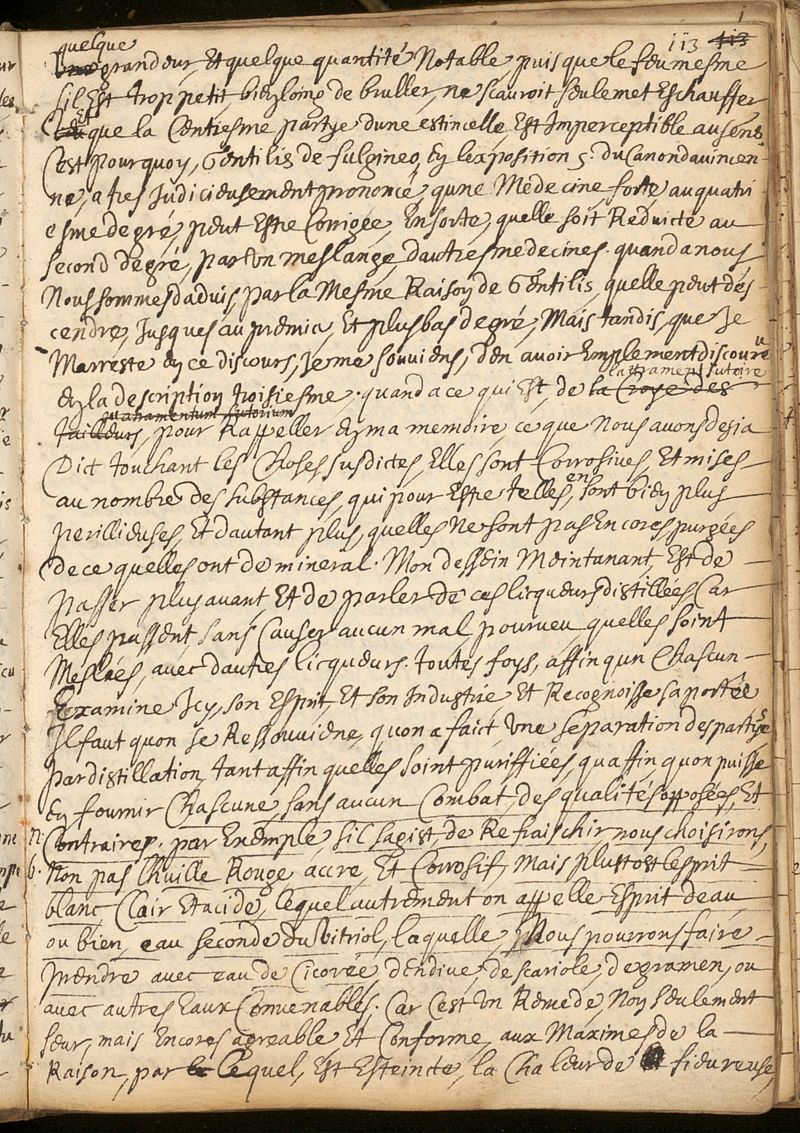 113 113
quelque
Une grandeur, Et quelque quantité Notable puis que le feu mesme
sil Est trop petit, bien loing de bruller, ne scauroit seulemet Eschauffer
Et que la Centiesme partye dune estincelle, Est Imperceptible au sens
Cest pourquoy, Gentilis de fulgineo, En lexposition 5. du Canon dauincen-
ne, a tres Judicieusement prononcé, qune Medecine forte, au quatri
esme degré, peut Estre Corrigée, En sorte, quelle soit Reduicte au
second degré, par Un meslange, dautres medecines. quand a nous
Nous sommes daduis, par la Mesme Raison de Gentilis, quelle peut des-
cendre, Jusques au premier, Et plus bas degré, Mais tandis, que Je
Marreste En ce discours, Je me souuiens, den auoir Emplement discouru
En la description troisiesme. quand a ce qui Est, de la Croye des
lattrament sutoire
Tailleurs, pour Rappeller En ma memoire, ce que Nous auons desia
atramentum sutorium
Dict touchant les Choses susdictes, Elles sont Corrosiues, Et mises
au nombre des substances, qui pour Estre telles, en sont bien plus
perillieuses, Et dautant plus, quelles Ne sont pas Encores purgées
de ce quelles ont de mineral. Mon dessein Meintanant, Est de
passer plus auant Et de parler de ces licqueurs distillées Car
Elles passent, sans Causer aucun mal pourueu quelles soint
Meslées, avec dautres licqueurs. toutes foys, affin qun Chascun
Examine Jcy, son Esprit, Et son Industrie, Et Recognoisse sa portée
Il faut quon se Ressouuiene, quon a faict, Une separation des partyes
par distillation, tant affin quelles soint puriffiées, qu affin quon puisse
En fournir Chascune, sans aucun Combat, des qualités opposées, Et
n. Contraires. par Exemple, sil sagist, de Refraischir, nous choisirons,
b. Non pas lhuille Rouge accre, Et Corrosif, Mais plustost lesprit
blanc, Clair Et acide, lequel autrement on appelle Esprit deau
ou bien, eau seconde du Vitriol, laquelle, Nous pourrons faire
prendre avec eau de Cicorée dendiue, descariole, de gramen, ou
avec autres Eaux Conuenables. Car Cest Un Remede, Non seulement
seur, mais Encores agreable Et Conforme, aux Maximes de la
Raison, par lequel, Est Esteincte, la Chaleur de fieureuse,